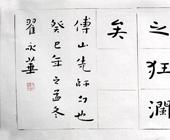 之狂瀾
矣
傅山先師句也
癸巳年之孟冬
翟永華